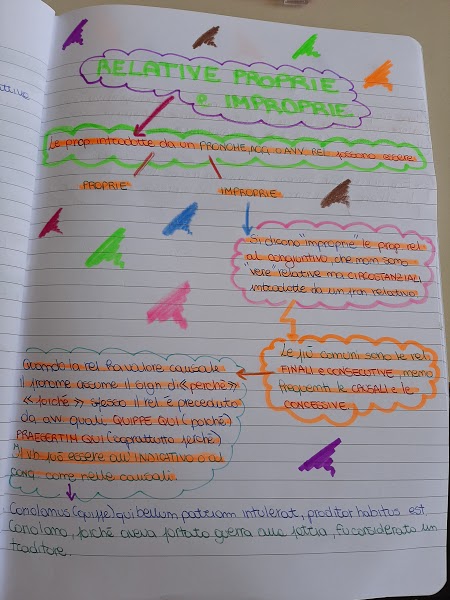 RELATIVE PROPRIE
e IMPROPRIE
Le prop introdotte da un PRONOME, AGG. o AVV REL possono essere
PROPRIE
IMPROPRIE
Si dicono "improprie" le prop rel.
al congiuntivo, che non sono
"vere" relative ma CIRCOSTANZIALI
introdotte da un pron relativo.
Le più comuni sono le rel.
FINALI e CONSECUTIVE, meno
frequenti le CAUSALI e le
CONCESSIVE.
Quando la rel ha valore causale
il pronome assume il sign di «perché»
«poiché» spesso il rel è preceduto
da avv quali QUIPPE QUI (poiché)
PRAEGERTIM QUI (soprattutto perché)
Il vb può essere all'INDICATIVO o al
cong. come nelle causali.
Coriolanus (quippe) qui bellum patriam intulerat, proditor habitus est.
Coriolano, poiché aveva portato guerra alla patria, fu considerato un
traditore.